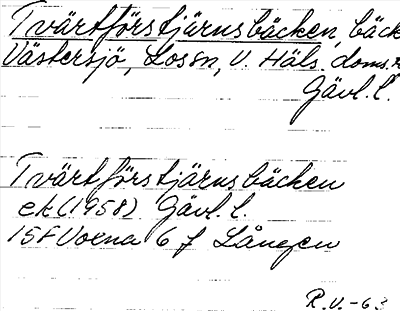 Tvärtförstjärnsbäcken, bäck
Västersjö, Lossn, V. Häls. doms.
Gävl. l.
Tvärtförstjärnsbäcken
ek (1958) Gävl. l.
15F Voxna 6 f Lången
R.V.-63